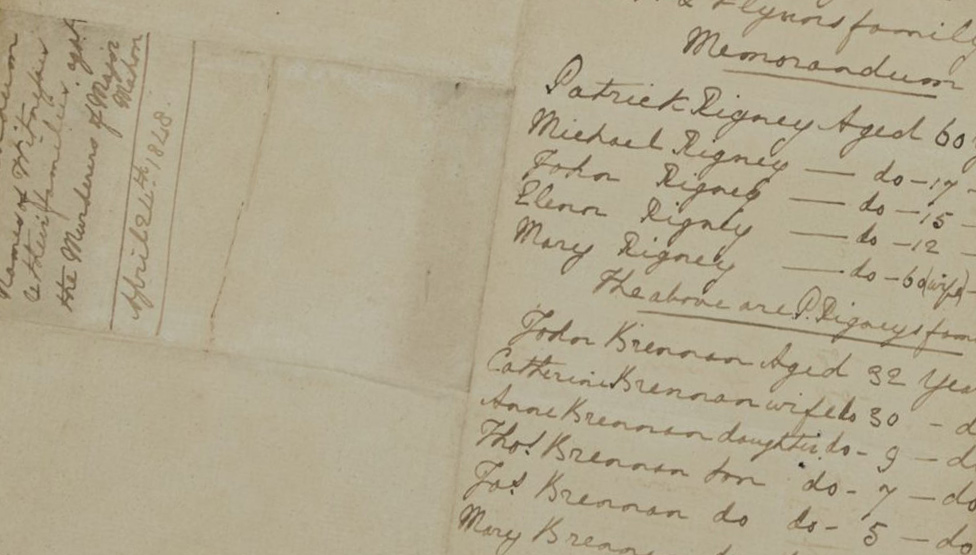 Names of Witnesses
& their families agst.
the Murderers of Major
Mahon
April 24th. 1848.
& Flynns family
Memorandum
Patrick Rigney Aged 60
Michael Rigney — do - 17 -
John Rigney — do - 15 -
Elenor Rigney — do - 12 -
Mary Rigney — do - 60 (wife) -
The above are P. Rigneys fam
John Brennan Aged 32 Yea
Catherine Brennan wife do 30 - d
Anne Brennan daughter do - 9 - d
Thos. Brennan son do - 7 - do
Jas. Brennan do do - 5 - do
Mary Brenna